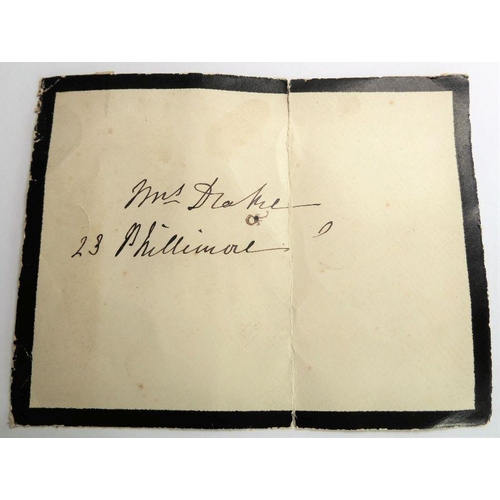 Mrs Drake
23 Phillimore